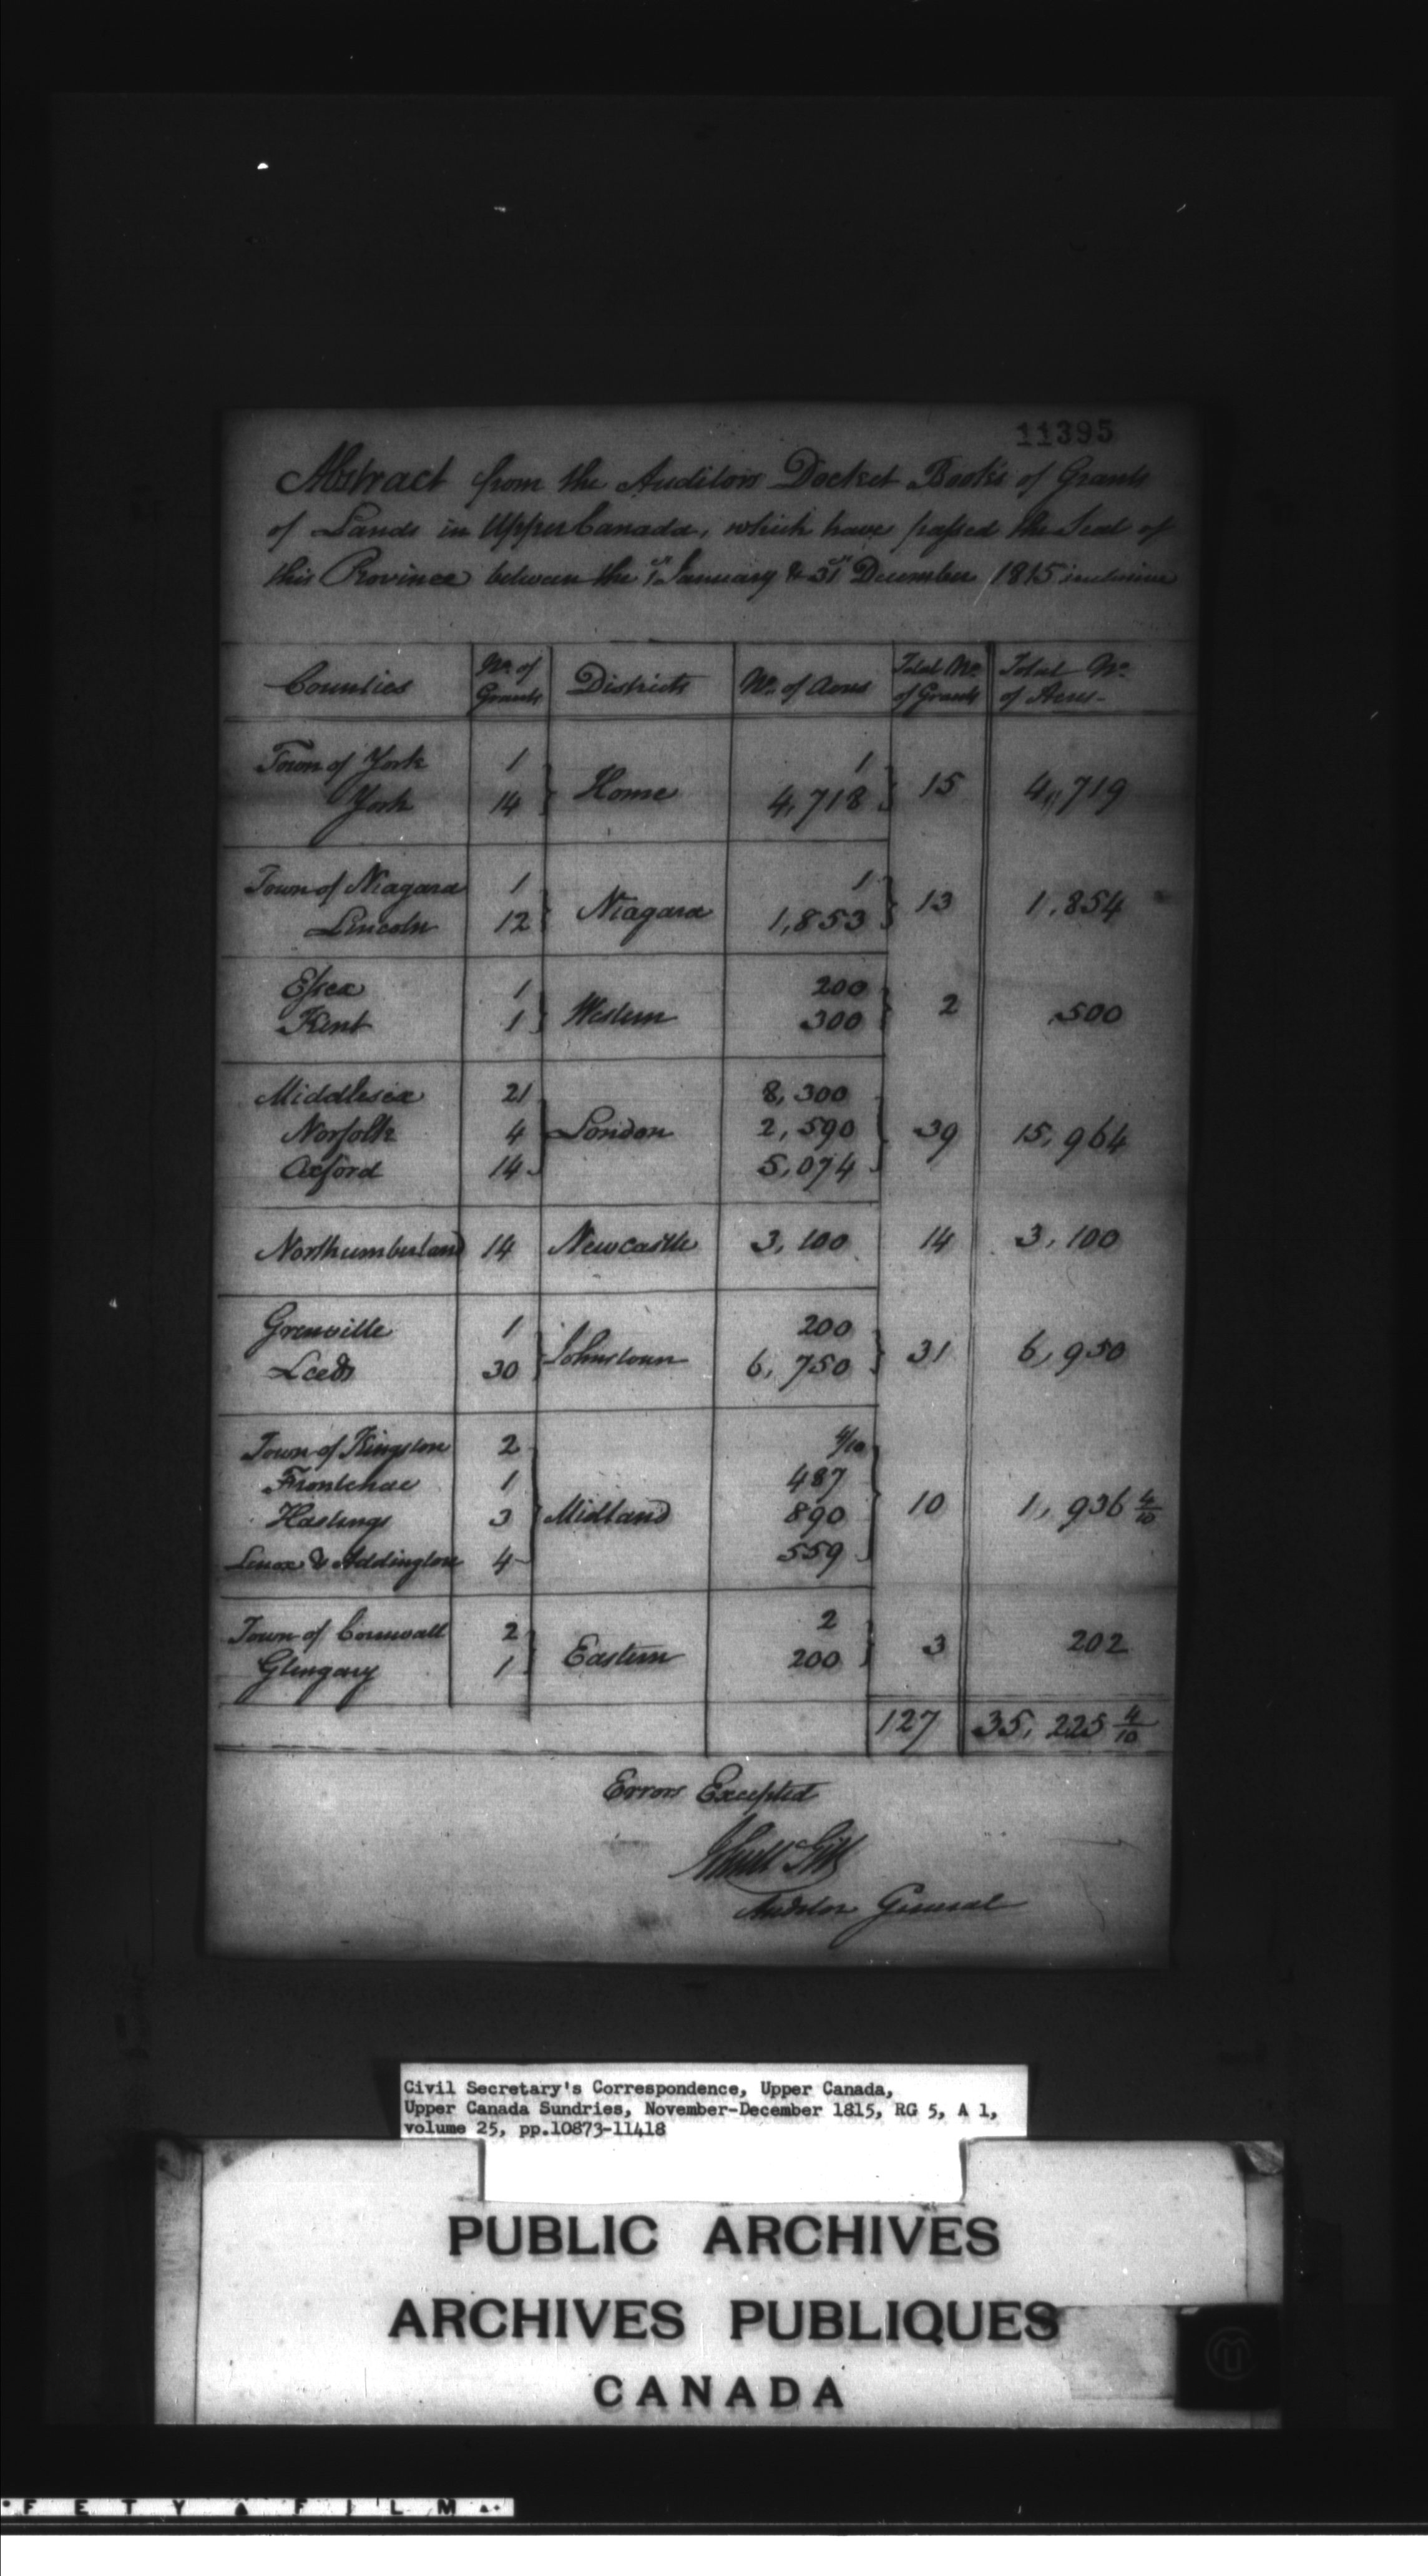 11395
Abstract from the Auditors Docket Books of Grants
of Lands in Upper Canada, which have passed the Seal of
this Province between the 1st January & 31st December 1815 inclusive
Counties | No. of Grants | Districts | No. of Acres | Total No. of Grants | Total No. of Acres
Town of York 1 1
York 14 Home 4,718 15 4,719
Town of Niagara 1 1
Lincoln 12 Niagara 1,853 13 1,854
Essex 1 200
Kent 1 Western 300 2 500
Middlesex 21 8,300
Norfolk 4 London 2,590 39 15,964
Oxford 14 5,074
Northumberland 14 Newcastle 3,100 14 3,100
Grenville 1 200
Leeds 30 Johnstown 6,750 31 6,950
Town of Kingston 2 4/10
Frontenac 1 487
Hastings 3 Midland 890 10 1,936 4/10
Lenox & Addington 4 559
Town of Cornwall 2 2
Glengary 1 Eastern 200 3 202
127 35,225 4/10
Errors Excepted
Auditor General
Civil Secretary's Correspondence, Upper Canada,
Upper Canada Sundries, November-December 1815, RG 5, A 1,
volume 25, pp.10873-11418
PUBLIC ARCHIVES
ARCHIVES PUBLIQUES
CANADA
FETY FILM